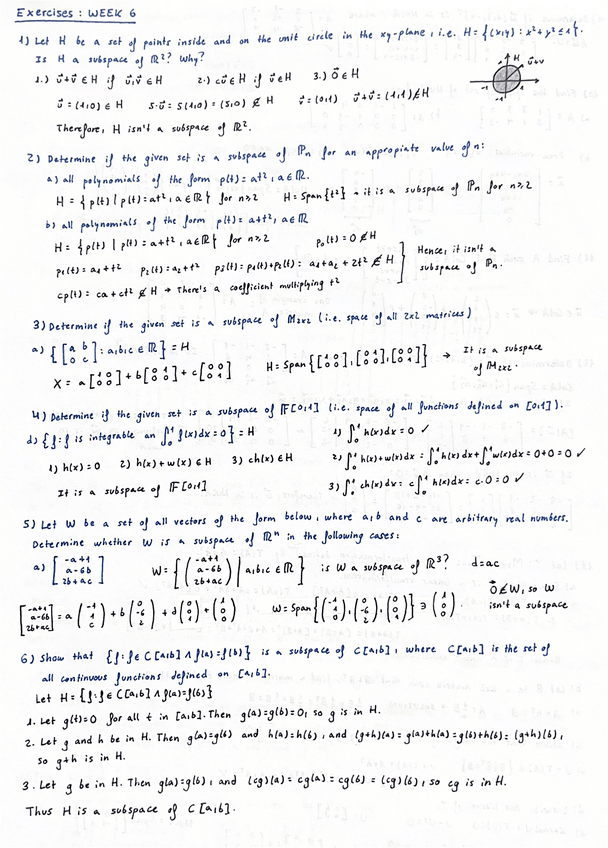 Exercises: WEEK 6
1) Let H be a set of points inside and on the unit circle in the xy-plane, i.e. H = {(x,y) : x² + y² ≤ 1}.
Is H a subspace of ℝ²? Why?
1.) u⃗+v⃗ ∈ H if u⃗,v⃗ ∈ H 2.) cu⃗ ∈ H if u⃗ ∈ H 3.) 0⃗ ∈ H
u⃗ = (1,0) ∈ H 5·u⃗ = 5(1,0) = (5,0) ∉ H v⃗ = (0,1) u⃗+v⃗ = (1,1) ∉ H
H u⃗+v⃗
-1 1
-1
Therefore, H isn't a subspace of ℝ².
2) Determine if the given set is a subspace of ℙn for an appropiate value of n:
a) all polynomials of the form p(t) = at², a ∈ ℝ.
H = {p(t) | p(t) = at², a ∈ ℝ} for n ≥ 2 H = Span{t²} → it is a subspace of ℙn for n ≥ 2
b) all polynomials of the form p(t) = a + t², a ∈ ℝ
H = {p(t) | p(t) = a + t², a ∈ ℝ} for n ≥ 2 p₀(t) = 0 ∉ H
p₁(t) = a₁ + t² p₂(t) = a₂ + t² p₃(t) = p₁(t) + p₂(t) = a₁ + a₂ + 2t² ∉ H
Hence, it isn't a
subspace of ℙn.
cp(t) = ca + ct² ∉ H → There's a coefficient multiplying t²
3) Determine if the given set is a subspace of M2x2 (i.e. space of all 2x2 matrices)
a) {[a b; 0 c] : a,b,c ∈ ℝ} = H H = Span{[1 0; 0 0], [0 1; 0 0], [0 0; 0 1]} → It is a subspace
of M2x2.
X = a[1 0; 0 0] + b[0 1; 0 0] + c[0 0; 0 1]
4) Determine if the given set is a subspace of 𝔽[0,1] (i.e. space of all functions defined on [0,1]).
d) {f : f is integrable an ∫₀¹ f(x)dx = 0} = H 1) ∫₀¹ h(x)dx = 0 ✓
1) h(x) = 0 2) h(x) + w(x) ∈ H 3) ch(x) ∈ H 2) ∫₀¹ h(x) + w(x)dx = ∫₀¹ h(x)dx + ∫₀¹ w(x)dx = 0 + 0 = 0 ✓
It is a subspace of 𝔽[0,1] 3) ∫₀¹ ch(x)dx = c∫₀¹ h(x)dx = c·0 = 0 ✓
5) Let W be a set of all vectors of the form below, where a,b and c are arbitrary real numbers.
Determine whether W is a subspace of ℝⁿ in the following cases:
a) [-a+1; a-6b; 2b+ac] W = {(-a+1; a-6b; 2b+ac) | a,b,c ∈ ℝ} is W a subspace of ℝ³? d = ac
[-a+1; a-6b; 2b+ac] = a(-1; 1; c) + b(0; -6; 2) + d(0; 0; 1) + (1; 0; 0) W = Span{(-1; 1; 0), (0; -6; 2), (0; 0; 1)} ∋ (1; 0; 0).
0⃗ ∉ W, so W
isn't a subspace
6) Show that {f : f ∈ C[a,b] ∧ f(a) = f(b)} is a subspace of C[a,b], where C[a,b] is the set of
all continuous functions defined on [a,b].
Let H = {f : f ∈ C[a,b] ∧ f(a) = f(b)}
1. Let g(t) = 0 for all t in [a,b]. Then g(a) = g(b) = 0, so g is in H.
2. Let g and h be in H. Then g(a) = g(b) and h(a) = h(b), and (g+h)(a) = g(a) + h(a) = g(b) + h(b) = (g+h)(b),
so g+h is in H.
3. Let g be in H. Then g(a) = g(b), and (cg)(a) = cg(a) = cg(b) = (cg)(b), so cg is in H.
Thus H is a subspace of C[a,b].